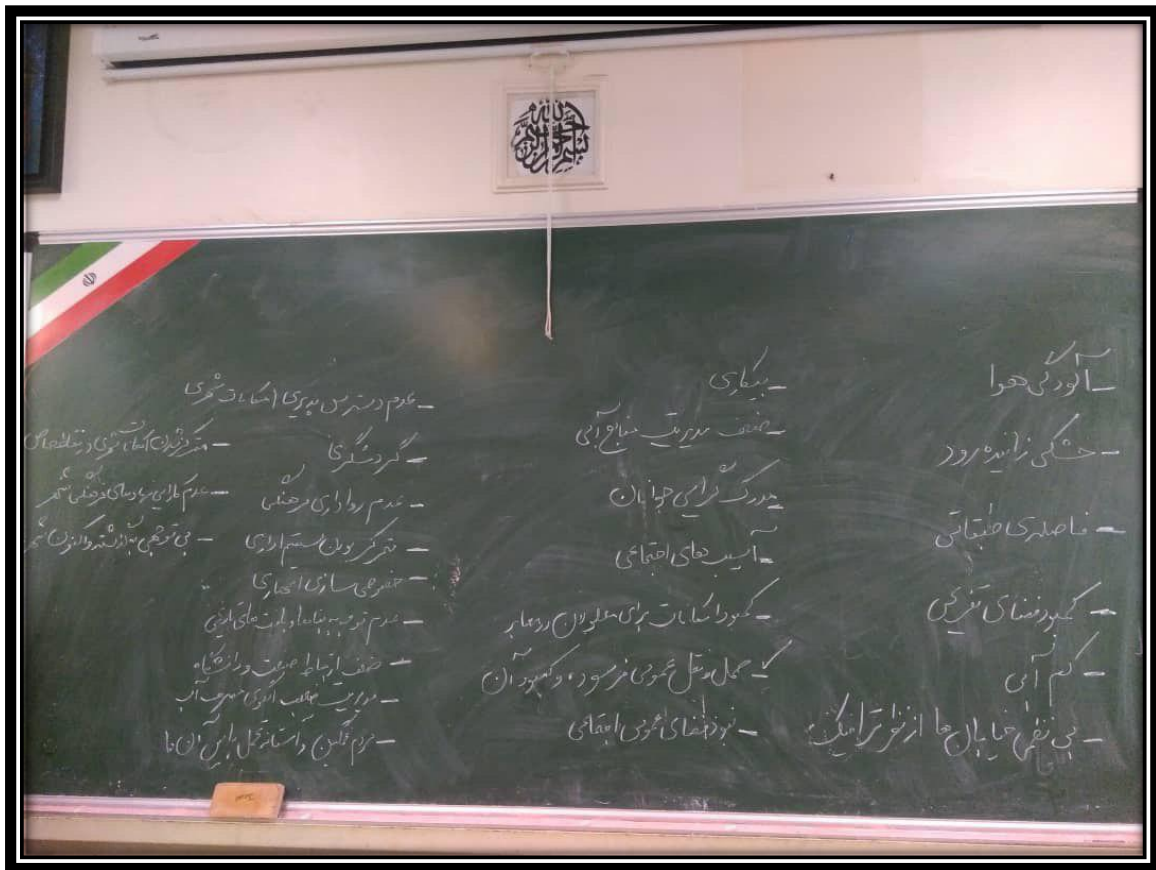 بسم الله الرحمن الرحیم
- آلودگی هوا
- خشکی زاینده رود
- فاصله‌ی طبقاتی
- کمبود فضای تفریحی
- کم آبی
- بی نظمی خیابان ها از نظر ترافیک
- بیکاری
- ضعف مدیریت منابع آبی
- مدرک گرایی جوانان
- آسیب های اجتماعی
- کمبود امکانات برای معلولان در معابر
- حمل و نقل عمومی فرسوده و کمبود آن
- نبود فضای عمومی اجتماعی
- عدم دسترس پذیری امکانات شهری
- گردشگری
- عدم رواداری فرهنگی
- متمرکز بودن سیستم اداری
- خصوصی سازی اجباری
- عدم توجه به بناها و بافت های تاریخی
- ضعف ارتباط صنعت و دانشگاه
- مدیریت الگوی مصرف آب
- مردم غمگین و آستانه تحمل پایین آن ها
- متمرکز شدن امکانات شهری در نقاط خاص
- عدم کارایی نهادهای فرهنگی شهر
- بی توجهی به گذشته و اکنون شهر